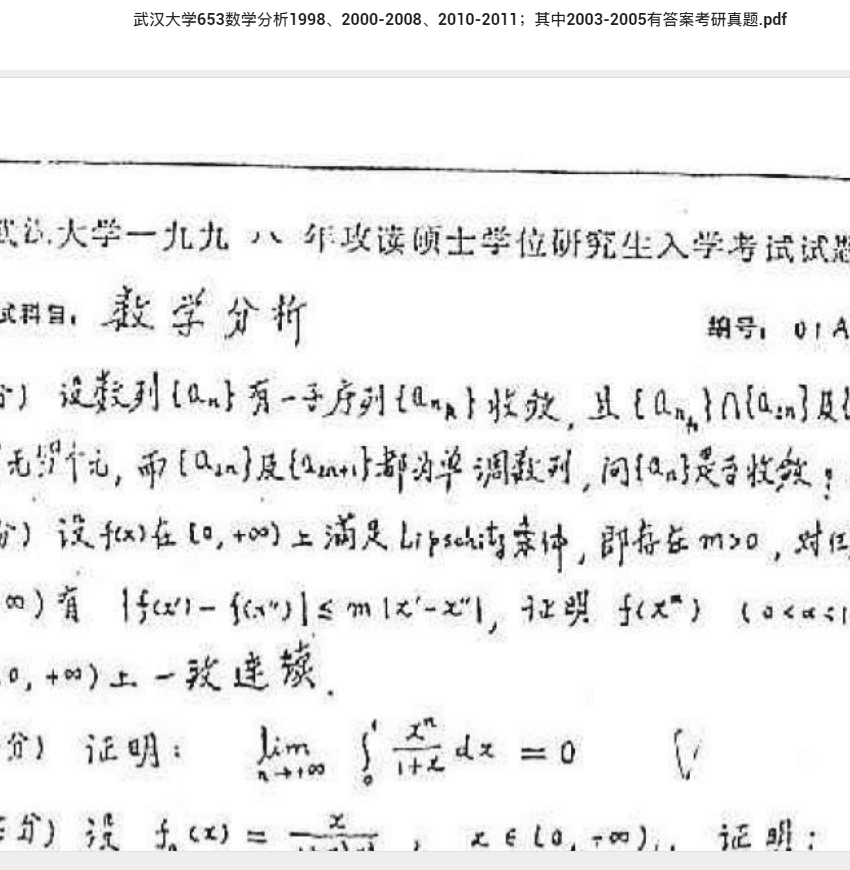 武汉大学653数学分析1998、2000-2008、2010-2011；其中2003-2005有答案考研真题.pdf
武汉大学一九九八年攻读硕士学位研究生入学考试试题
试科目：数学分析
编号：01A
分) 设数列{aₙ}有一子序列{aₙₖ}收敛，且{aₙₖ}∩{a₂ₙ}及{
无穷个元，而{a₂ₙ}及{a₂ₙ₊₁}都为单调数列，问{aₙ}是否收敛？
分) 设f(x)在[0,+∞)上满足Lipschitz条件，即存在m>0，对任
∞)有 |f(x′)-f(x″)|≤m|x′-x″|，证明 f(xᵅ) (0<α≤1
0,+∞)上一致连续.
分) 证明： lim_{n→+∞} ∫₀¹ xⁿ/(1+x) dx = 0
分) 设 fₙ(x) = x/ , x∈[0,+∞), 证明：